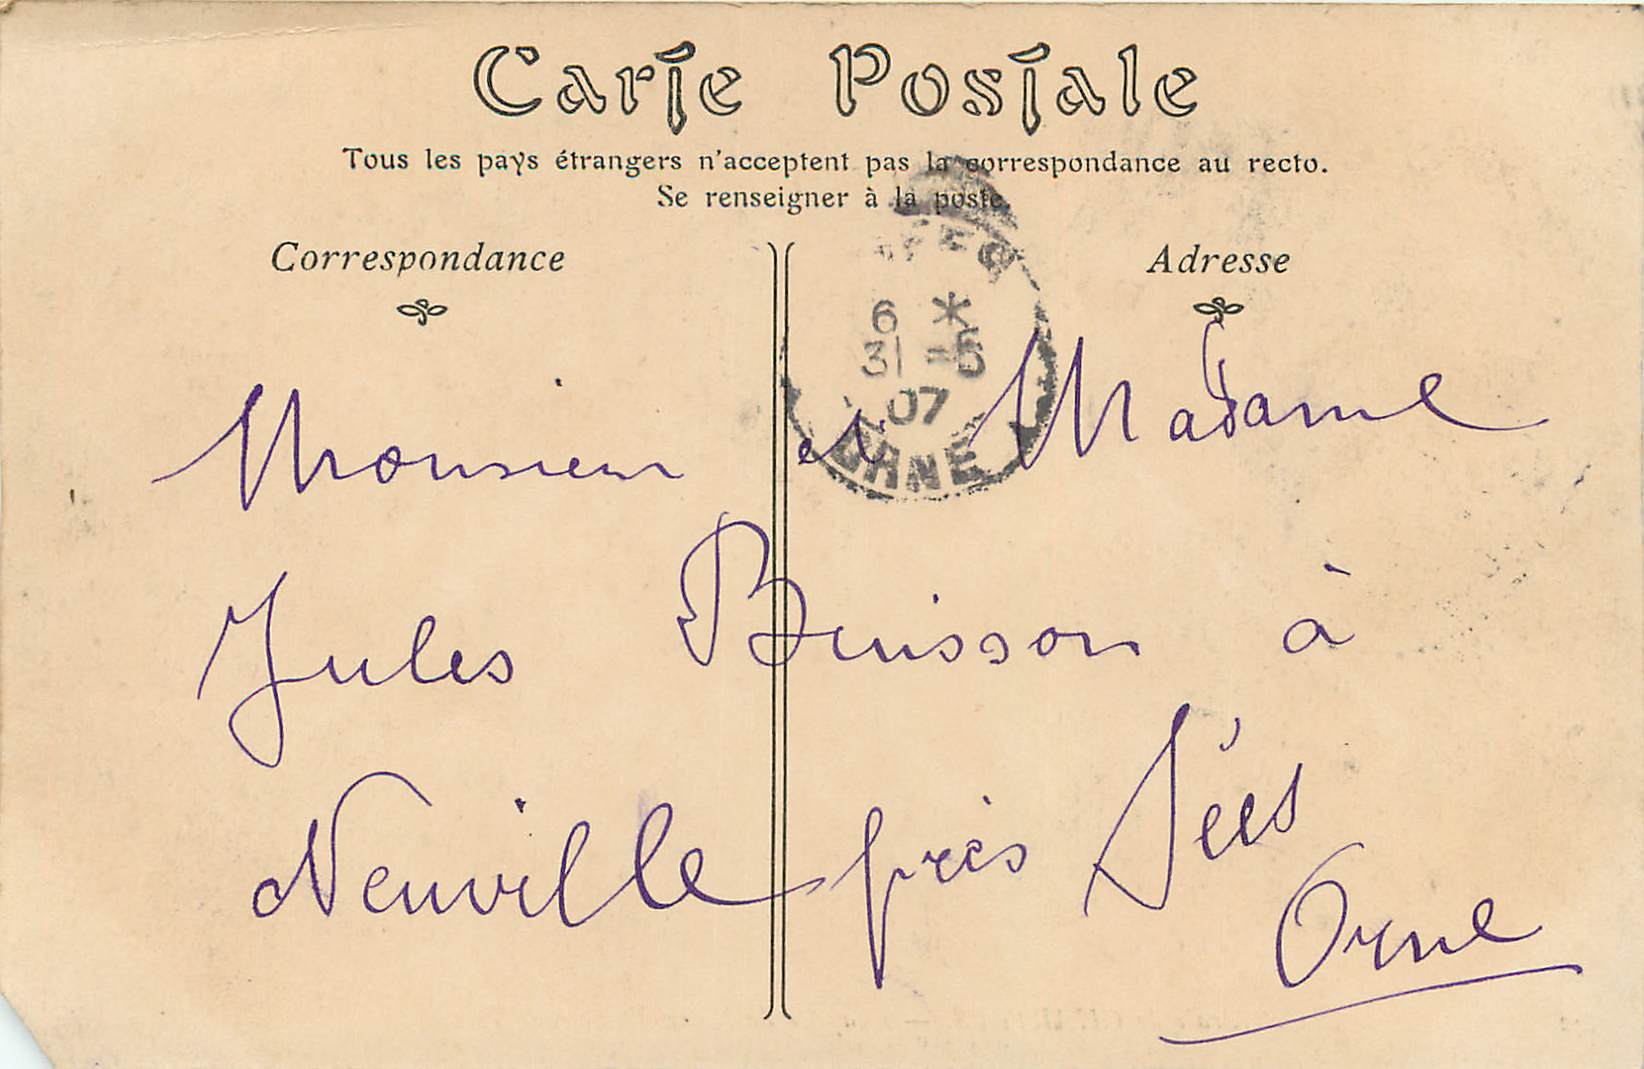 Carte Postale
Tous les pays étrangers n'acceptent pas la correspondance au recto.
Se renseigner à la poste.
Correspondance
Adresse
6 *
31 - 5
07
ORNE
Monsieur et Madame
Jules Buisson à
Neuville près Sées
Orne